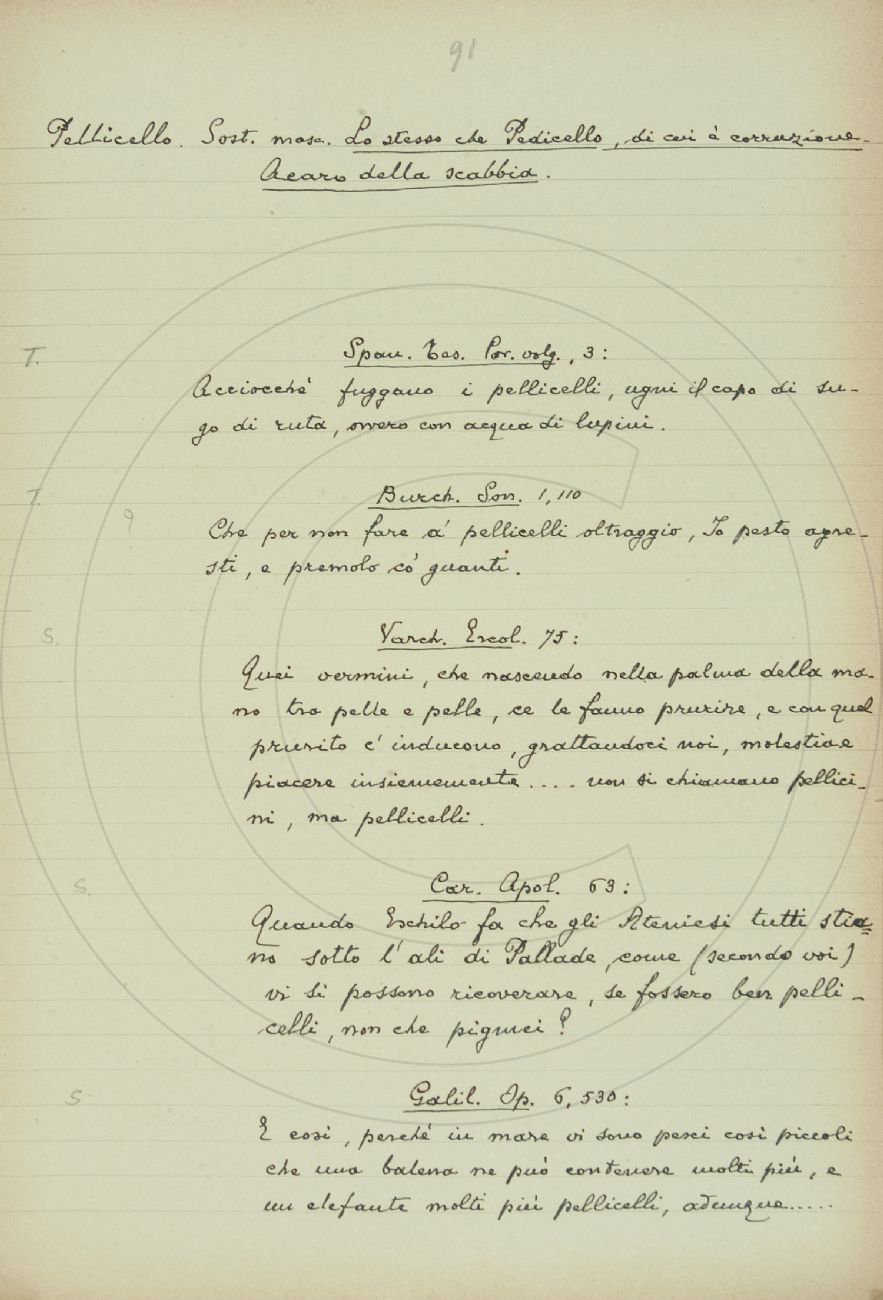 91
Pellicello. Sost. masc. Lo stesso che Pedicello, di cui è corruzione.
Acaro della scabbia.
T.
Span. Tes. Pov. volg., 3:
Acciocchè fuggano i pellicelli, ugni il capo di su-
go di ruta, ovvero con acqua di lupini.
T.
Burch. Son. 1, 110
Che per non fare a' pellicelli oltraggio, Io pesto agre-
sti, e premolo co' guanti.
S.
Varch. Ercol. 75:
Quei vermini, che nascendo nella palma della ma-
no tra pelle e pelle, ce le fanno prurire, e con quel
prurito c' inducono, grattandoci noi, molestia e
piacere insiememente .... non si chiamano pellici-
ni, ma pellicelli.
S.
Car. Apol. 63:
Quando Eschilo fa che gli Ateniesi tutti stia=
no sotto l' ali di Pallade, come (secondo voi)
vi si possono ricoverare, se fossero ben pelli-
celli, non che pigmei?
S
Galil. Op. 6, 530:
E così, perchè in mare vi sono pesci così piccoli
che una balena ne può contenere molti più, e
un elefante molti più pellicelli, adunque.....